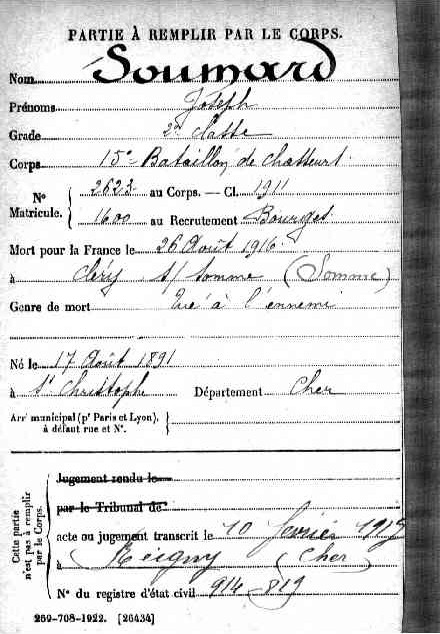 PARTIE À REMPLIR PAR LE CORPS.
Nom Soumard
Prénoms Joseph
Grade 2e classe
Corps 15e Bataillon de Chasseurs
No Matricule. 2623 au Corps. — Cl. 1911
1600 au Recrutement Bourges
Mort pour la France le 26 Août 1916
à Cléry s/ Somme (Somme)
Genre de mort Tué à l'ennemi
Né le 17 Août 1891
à St Christophe Département Cher
Arrt municipal (pr Paris et Lyon),
à défaut rue et No.
Cette partie n'est pas à remplir par le Corps.
Jugement rendu le
par le Tribunal de
acte ou jugement transcrit le 10 février
à Reigny (Cher
No du registre d'état civil 914-819
269-708-1922. [26434]